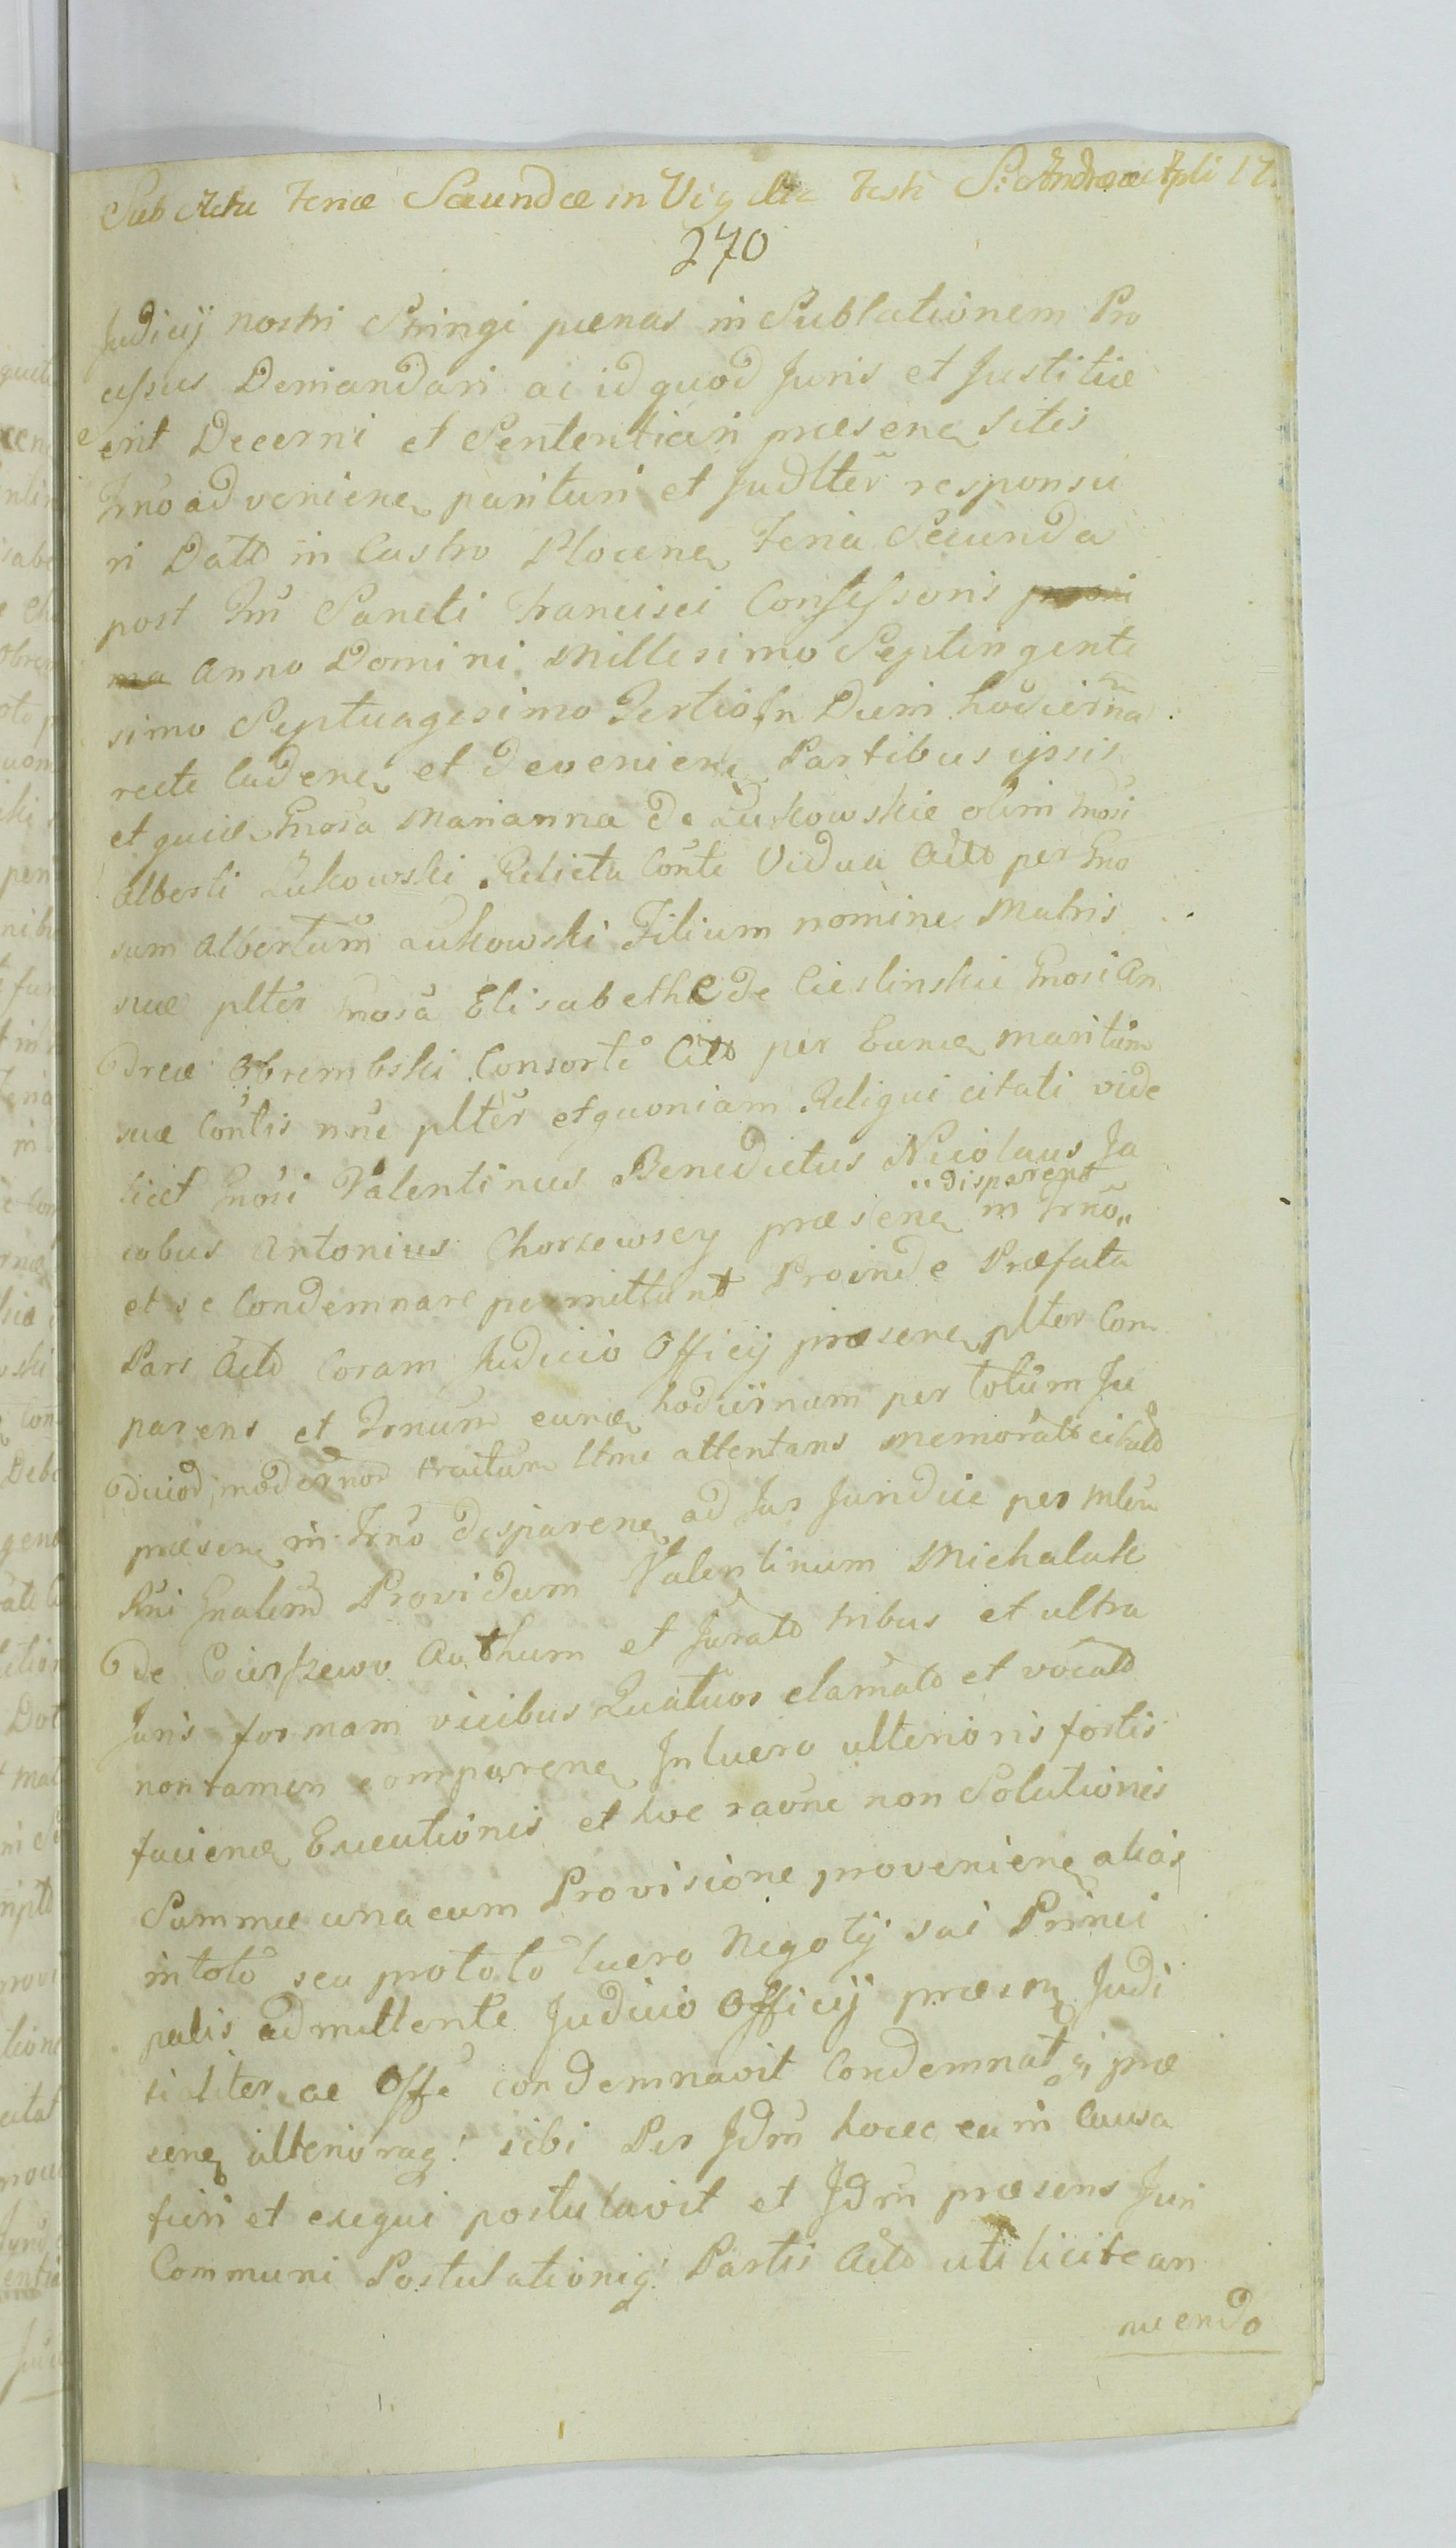 Sub Actu Feriæ Secundæ in Vigilia Festi S: Andreæ Apli 17
270
Judicij nostri Stringi pænas in Sublationem Pro
cessus Demandari ac id quod Juris et Justitiæ
erit Decerni et Sententiari præsenã sitis
Trno advenienã parituri et Judlter responsu
ri Datt in Castro Plocenã Feria Secunda
post Fm Sancti Francisci Confessoris
Anno Domini Millesimo Septingente
simo Septuagesimo Tertio In Diem hodiernã
recte cadenã et devenienã Partibus ipsis
et quia Gnosa Marianna de Łukowskie olim Gnosi
Alberti Łukowski Relicta Conte Vidua Citt per Gno
sum Albertum Łukowski Filium nomine Matris
suæ plter Gnosa Elisabethe de Cieslinskie Gnosi An
dreæ Obrembski Consorte Citt per Eunã maritum
suæ Contis nne plter et quoniam Reliqui citati vide
licet Gnosi Valentinus Benedictus Nicolaus Ja
cobus Antonius Chorzewscy præsenã in Trno,, ,,disparent
et se Condemnare permittunt Proinde Præfata
Pars Actt Coram Judicio Officij præsenã plter Com
parens et Trnum eunã hodiernum per totum Ju
diciod, modernod tractum ltme attentans memoratt citatt
præsen in Trno disparenã ad Jus Juridice per Mlem
Rni Gnalem Providum Valentinum Michalak
de Cierszewo Authum et Juratt tribus et ultra
Juris formam vicibus Quatuor clamatt et vocatt
non tamen comparenã In lucro ulterioris fortis
faciendã Executionis et hoc raone non Solutionis
Summæ una cum Provisione provenienã alias
in toto seu pro toto lucro Negotij sui Princi
palis admittente Judicio Officij præsen Judi
cialiter ac Offe condemnavit Condemnat præ
senã ulteriorãq: sibi Per Jdm hocce ea in Causa
fieri et exequi postulavit et Jdm præsens Juri
Communi Postulationiq: Partis Actt uti licite an
nuendo